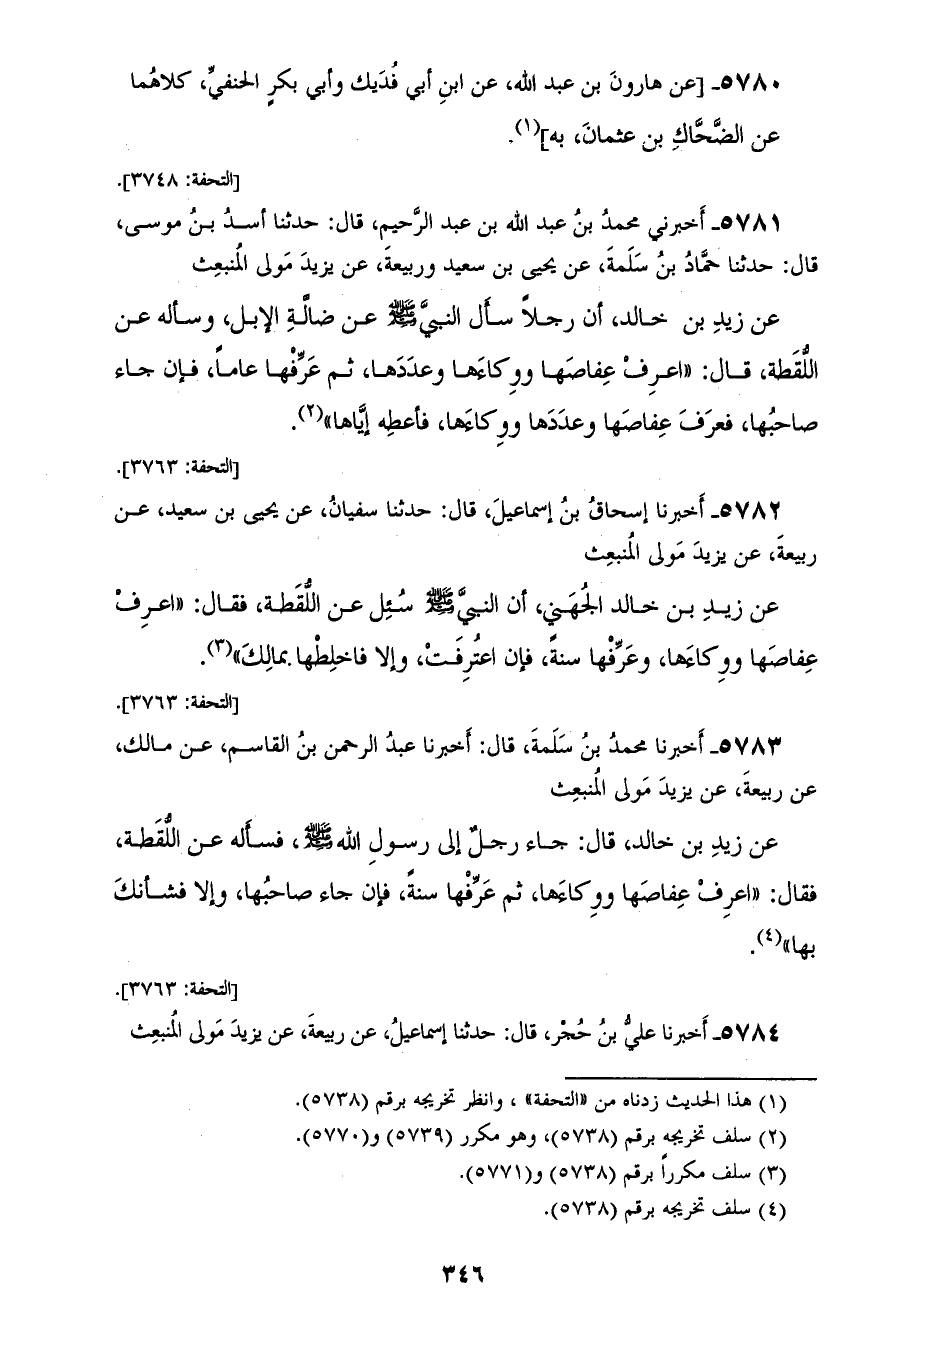 ٥٧٨٠ـ [عن هارونَ بن عبد الله، عن ابنِ أبي فُدَيك وأبي بكرٍ الحنفيِّ، كلاهُما
عن الضَّحَّاكِ بن عثمانَ، به](١).
[التحفة: ٣٧٤٨].
٥٧٨١ـ أَخبرني محمدُ بنُ عبد الله بن عبد الرَّحيم، قال: حدثنا أسدُ بنُ موسى،
قال: حدثنا حمَّادُ بنُ سَلَمةَ، عن يحيى بن سعيد وربيعةَ، عن يزيدَ مَولى المُنبعِث
عن زيدِ بن خالد، أن رجلاً سأل النبيَّ ﷺ عن ضالَّةِ الإبل، وسأله عن
اللُّقَطة، قال: «اعرِفْ عِفاصَها ووِكاءَها وعدَدَها، ثم عَرِّفْها عاماً، فإن جاء
صاحبُها، فعرَفَ عِفاصَها وعدَدَها ووِكاءَها، فأعطِه إيَّاها»(٢).
[التحفة: ٣٧٦٣].
٥٧٨٢ـ أَخبرنا إسحاقُ بنُ إسماعيلَ، قال: حدثنا سفيانُ، عن يحيى بن سعيد، عن
ربيعةَ، عن يزيدَ مَولى المُنبعِث
عن زيدِ بن خالد الجُهَني، أن النبيَّ ﷺ سُئِل عن اللُّقَطة، فقال: «اعرِفْ
عِفاصَها ووِكاءَها، وعَرِّفْها سنةً، فإن اعتُرِفَتْ، وإلا فاخلِطْها بمالِكَ»(٣).
[التحفة: ٣٧٦٣].
٥٧٨٣ـ أَخبرنا محمدُ بنُ سَلَمةَ، قال: أَخبرنا عبدُ الرحمن بنُ القاسم، عن مالك،
عن ربيعةَ، عن يزيدَ مَولى المُنبعِث
عن زيدِ بن خالد، قال: جاء رجلٌ إلى رسولِ الله ﷺ، فسأَله عن اللُّقَطة،
فقال: «اعرِفْ عِفاصَها ووِكاءَها، ثم عَرِّفْها سنةً، فإن جاء صاحبُها، وإلا فشأنكَ
بها»(٤).
[التحفة: ٣٧٦٣].
٥٧٨٤ـ أَخبرنا عليُّ بنُ حُجْر، قال: حدثنا إسماعيلُ، عن ربيعةَ، عن يزيدَ مَولى المُنبعِث
(١) هذا الحديث زدناه من «التحفة» ، وانظر تخريجه برقم (٥٧٣٨).
(٢) سلف تخريجه برقم (٥٧٣٨)، وهو مكرر (٥٧٣٩) و(٥٧٧٠).
(٣) سلف مكرراً برقم (٥٧٣٨) و(٥٧٧١).
(٤) سلف تخريجه برقم (٥٧٣٨).
٣٤٦